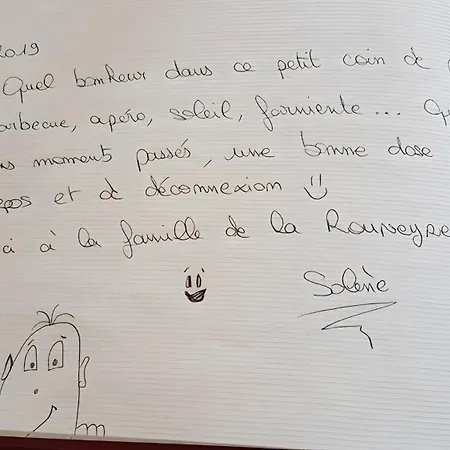 2019
Quel bonheur dans ce petit coin de
barbecue, apéro, soleil, farniente...
moment passés, une bonne dose
et de déconnexion
à la famille de la Rouveyre
Solène